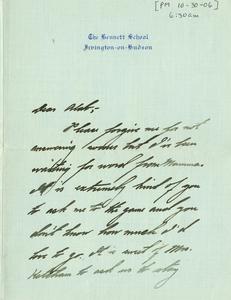 [PM 10-30-06]
6:30am
The Bennett School
Irvington-on-Hudson
Dear
Please forgive me for not
answering sooner but I've been
waiting for word from Mamma.
It is extremely kind of you
to ask me to the game and you
don't know how much I'd
love to go. It is sweet of Mrs.
to ask us to stay